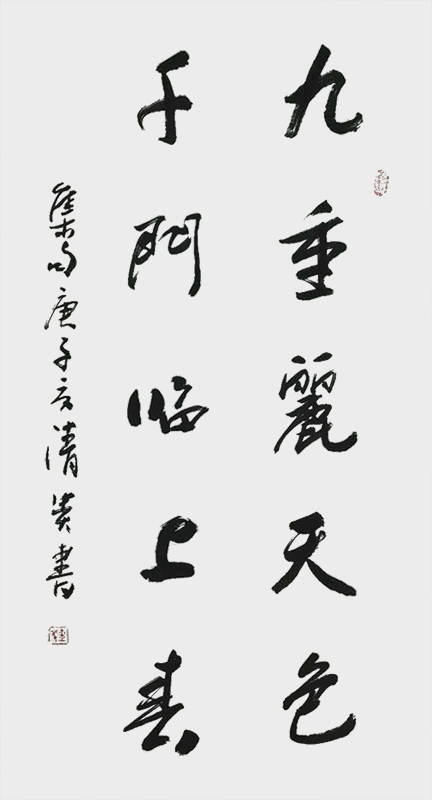 九重麗天色
千門臨上春
集句庚子清書